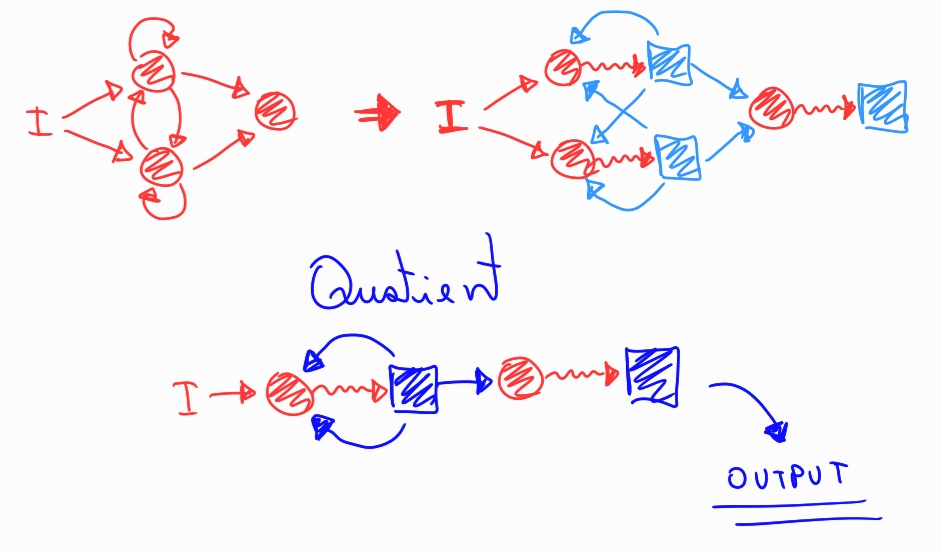 I
I
Quotient
I
OUTPUT